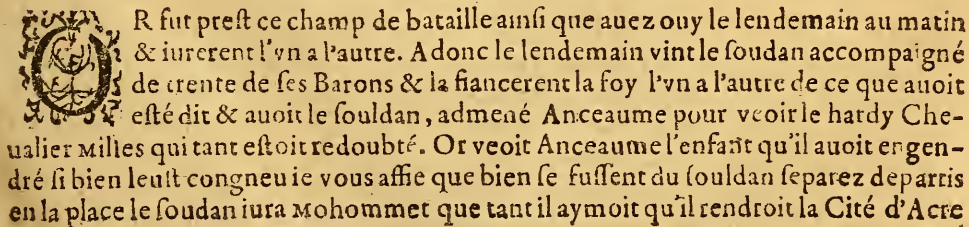 OR fut preſt ce champ de bataille ainſi que auez ouy le lendemain au matin
& iurerent l'vn a l'autre. A donc le lendemain vint le ſoudan accompaigné
de trente de ſes Barons & la fiancerent la foy l'vn a l'autre de ce que auoit
eſté dit & auoit le ſouldan, admené Anceaume pour veoir le hardy Che-
ualier Milles qui tant eſtoit redoubté. Or veoit Anceaume l'enfant qu'il auoit engen-
dré ſi bien leuſt congneu ie vous affie que bien ſe fuſſent du ſouldan ſeparez departis
en la place le ſoudan iura Mohommet que tant il aymoit qu'il rendroit la Cité d'Acre